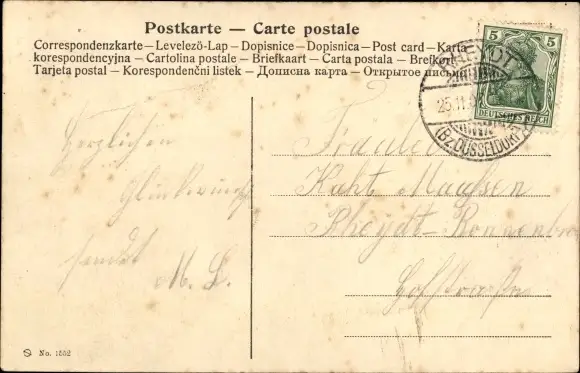 Postkarte — Carte postale
Correspondenzkarte — Levelező-Lap — Dopisnice — Dopisnica — Post card — Karta
korespondencyjna — Cartolina postale — Briefkaart — Carta postala — Brefkort
Tarjeta postal — Korespondenční listek — Дописна карта — Открытое письмо
5 5
DEUTSCHES REICH
RHEYDT
25.11.
(Bz. DÜSSELDORF)
Herzlichen
Glückwunsch
sendet
M. L.
Käht Maaßen
Rheydt-Bonnenbr
No. 1552